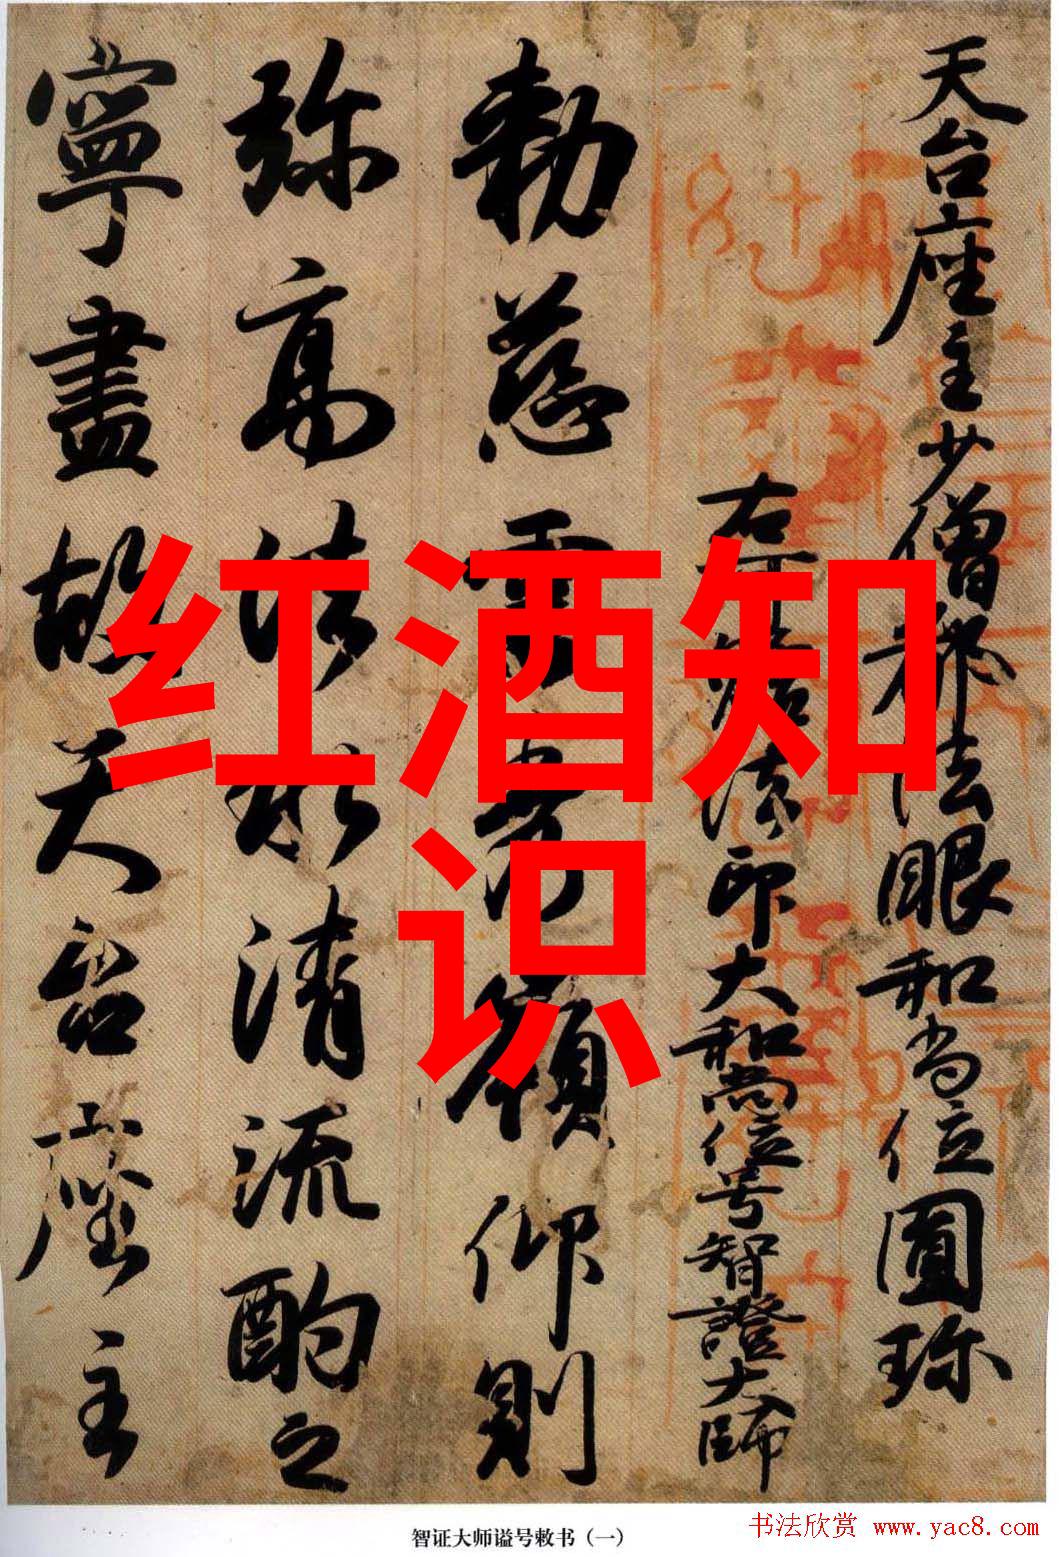 天台座主少僧都法眼和尚位圓珍
右法印大和尚位号智證大師
勅慈雲秀嶺仰則
弥高法水清流酌之
寧盡故天台座主
红酒知
识
智证大师谥号敕书（一）
书法欣赏 www.yac8.com